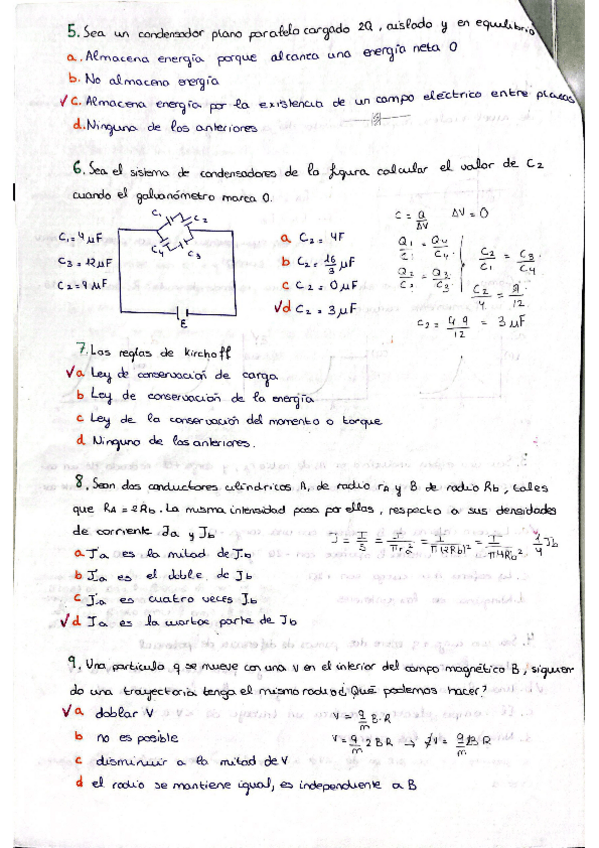 5. Sea un condensador plano paralelo cargado 2Q, aislado y en equilibrio
a. Almacena energía porque alcanza una energía neta 0
b. No almacena energía
√c. Almacena energía por la existencia de un campo eléctrico entre placas
d. Ninguna de las anteriores
6. Sea el sistema de condensadores de la figura calcular el valor de C2
cuando el galvanómetro marca 0.
C1 = 4 μF
C3 = 12 μF
C2 = 9 μF
C1 C2
C4 C3
E
a C2 = 4F
b C2 = 16/3 μF
c C2 = 0 μF
√d C2 = 3 μF
C = Q/ΔV ΔV = 0
Q1/C1 = Q4/C4
Q2/C2 = Q3/C3
C2/C1 = C3/C4
C2/4 = 9/12
C2 = 4 9/12 = 3 μF
7. Las reglas de Kirchoff
√a Ley de conservación de carga
b Ley de conservación de la energía
c Ley de la conservación del momento o torque
d Ninguno de las anteriores.
8. Sean dos conductores cilíndricos A, de radio rA y B de radio Rb, tales
que RA = 2Rb. La misma intensidad pasa por ellas, respecto a sus densidades
de corriente Ja y Jb
J = I/S = I/πra² = I/π(2Rb)² = I/π4Rb² 1/4 Jb
a Ja es la mitad de Jb
b Ja es el doble de Jb
c Ja es cuatro veces Jb
√d Ja es la cuarta parte de Jb
9. Una partícula q se mueve con una v en el interior del campo magnético B, siguien
do una trayectoria tenga el mismo radio ¿Qué podemos hacer?
√a doblar V
b no es posible
c disminuir a la mitad de V
d el radio se mantiene igual, es independiente a B
V = q/m B·R
V = q/m 2BR → 2V = q/m 2BR